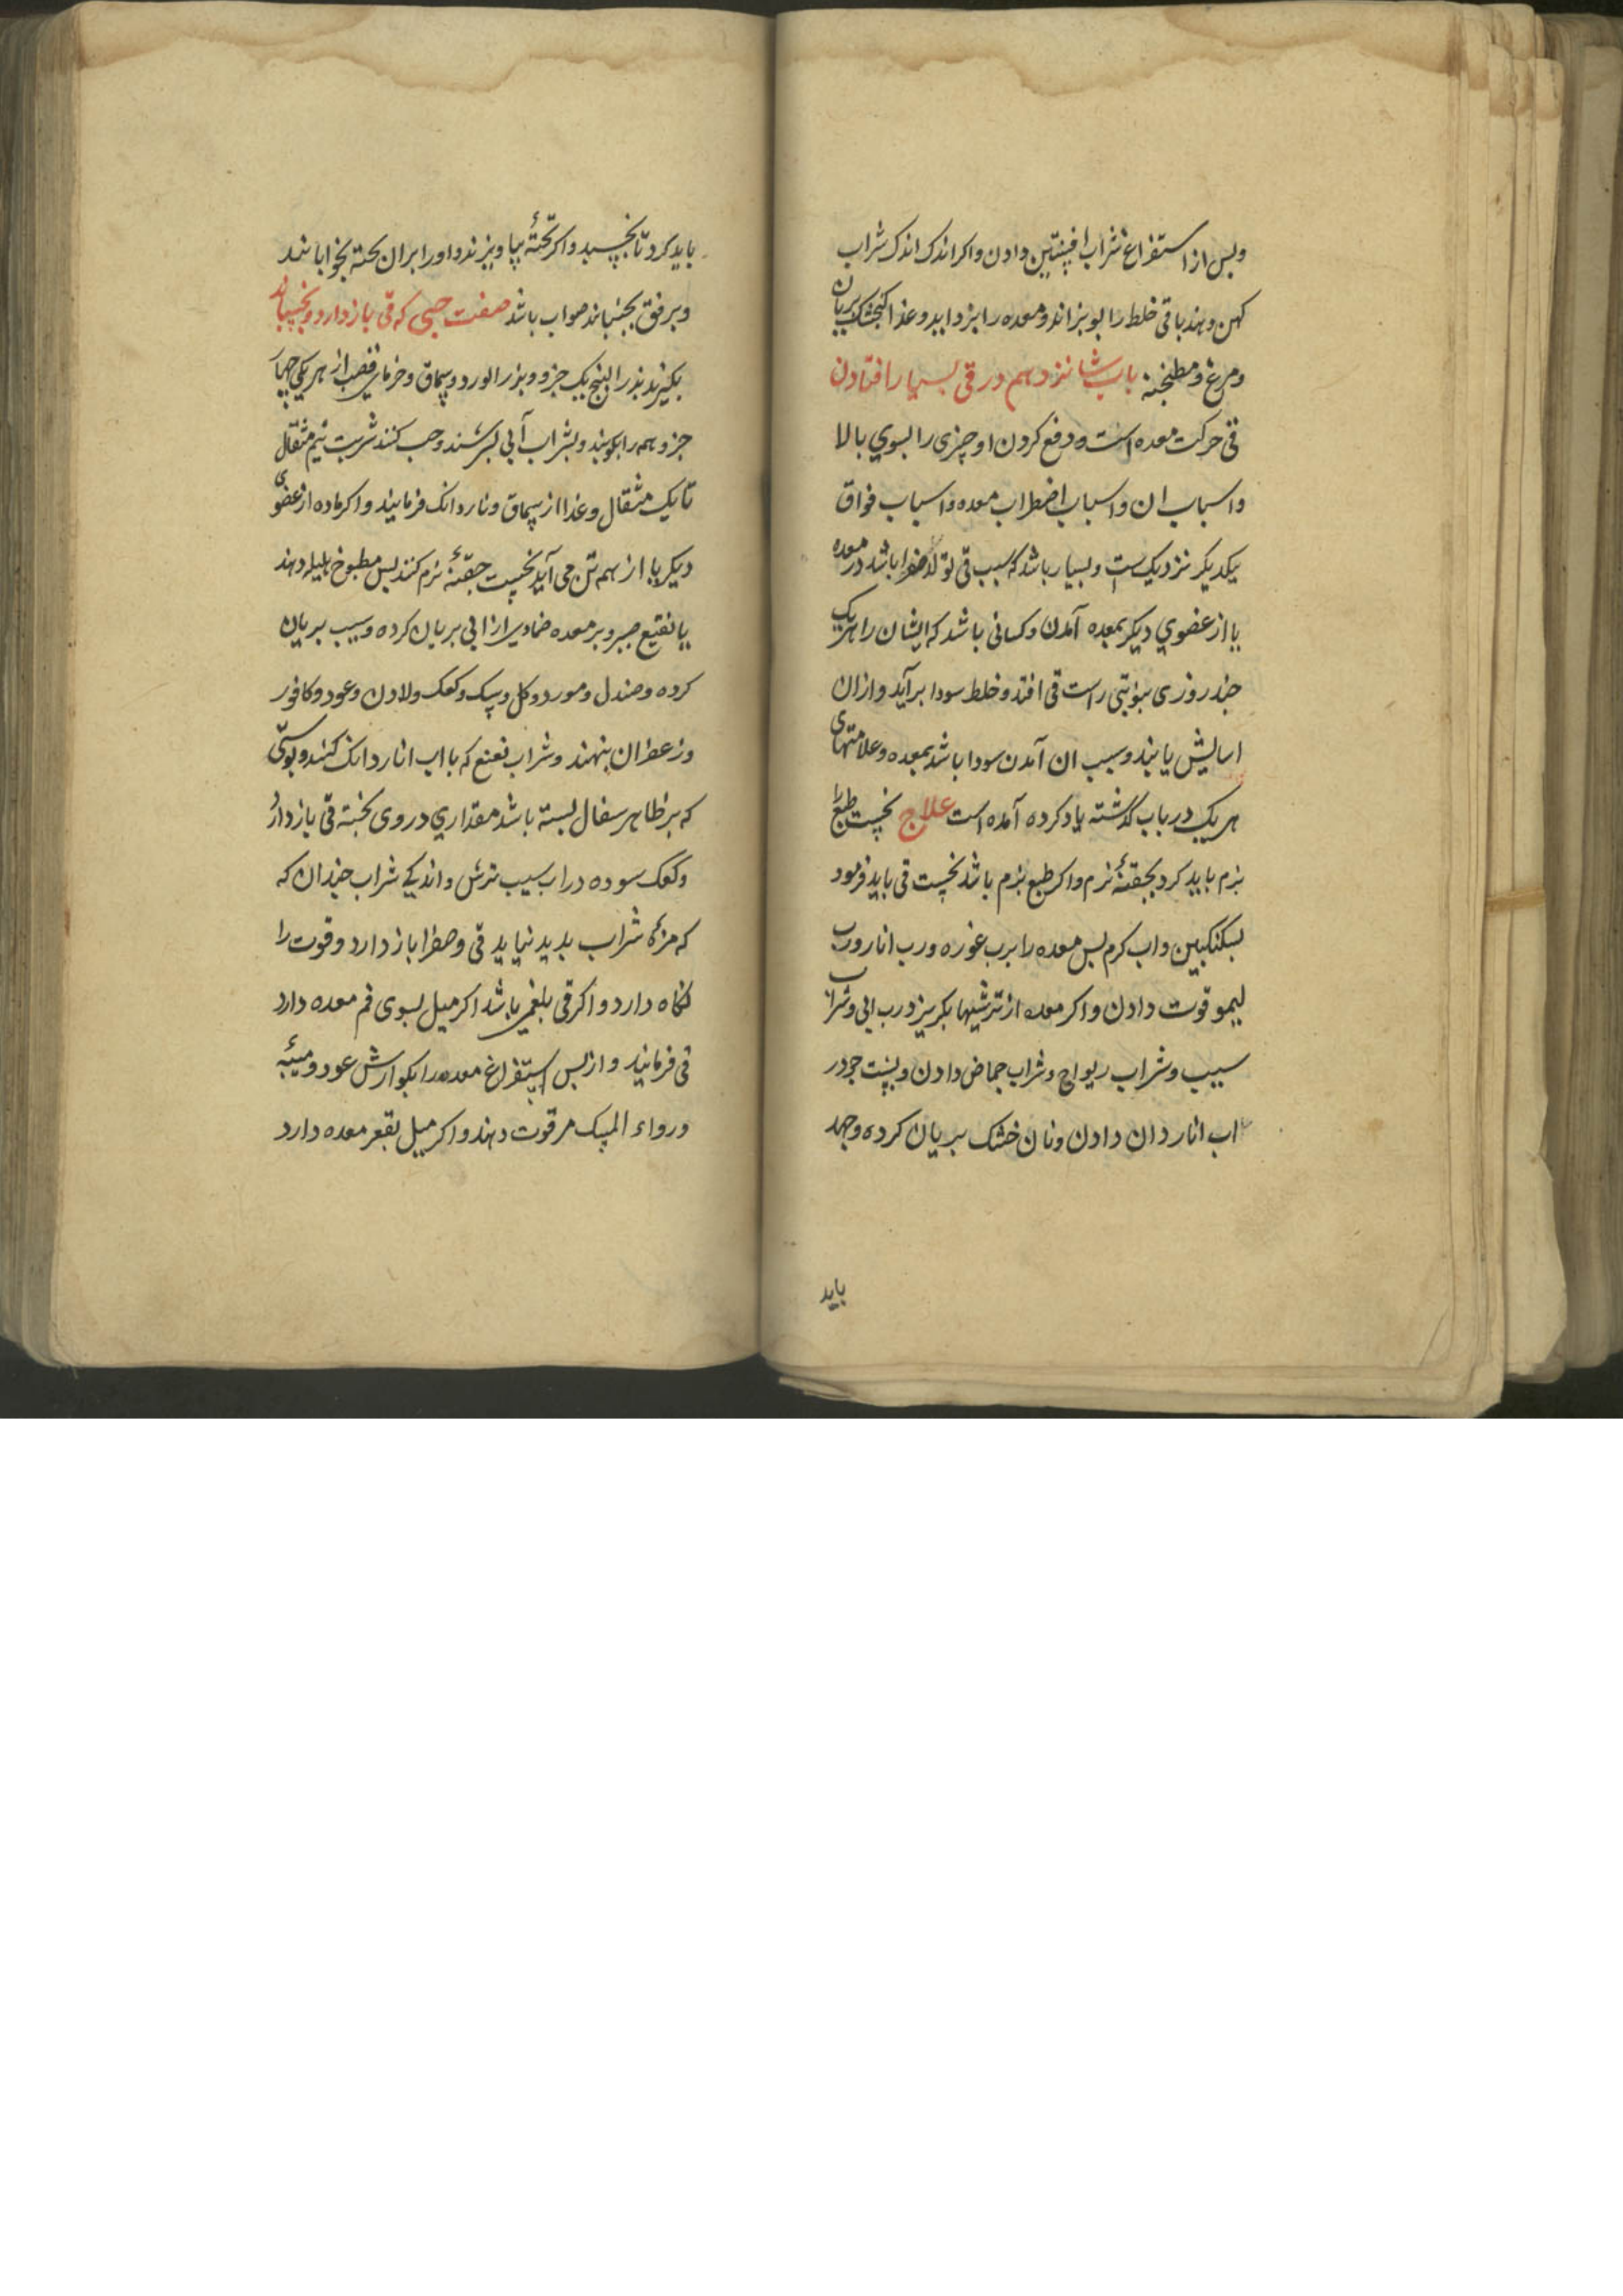 وپس از استفراغ شراب افسنتین دادن واکر اندک اندک شراب
کهن دهند باقی خلط را بوبزاند ومعده را بزداید وغذا کنجشک بریان
ومرغ ومطنجنه باب شانزدهم در قی بسیار افتادن
قی حرکت معده است و دفع کردن او چیزی را بسوی بالا
واسباب ان واسباب اضطراب معده واسباب فواق
یکدیکر نزدیکست وبسیار باشد که سبب قی تولد صفرا باشد در معده
یا از عضوی دیکر بمعده آمدن وکسانی باشد که ایشان را هر یک
چند روزی بنوبتی راست قی افتد وخلط سودا برآید وازان
اسایش یابند وسبب ان آمدن سودا باشد بمعده وعلامتهای
هر یک در باب گذشته یاد کرده آمده است علاج نخست طبع را
نرم باید کرد بحقنهٔ نرم واکر طبع نرم باشد نخست قی باید فرمود
بسکنکبین واب کرم پس معده را برب غوره ورب انار ورب
لیمو قوت دادن واکر معده از ترشیها بکریزد رب ابی وشراب
سیب وشراب ریواج وشراب حماض دادن وپست جو در
اب انار دان دادن ونان خشک بریان کرده وجهد
باید
باید کرد تا بخسبد واکر تختهٔ بیاویزند واو را بران تخته بخوابانند
وبرفق بجنبانند صواب باشد صفت حبی که قی باز دارد وبخسباند
بکیرند بذر البنج یک جزو وبزر الورد وسماق وخرمای قصب از هر یکی چهار
جزو همه را بکوبند وبشراب آبی بسرشند وحب کنند شربت نیم مثقال
تا یک مثقال وغذا از سماق وناردانک فرمایند واکر ماده از عضوی
دیکر یا از همه تن می آید نخست حقنهٔ نرم کنند پس مطبوخ هلیله دهند
یا نقیع صبر وبر معده ضمادی از ابی بریان کرده وسیب بریان
کرده وصندل ومورد وکل وسک وکعک ولادن وعود وکافور
وزعفران بنهند وشراب نعنع که با اب اناردانک کنند وپوستی
که بر ظاهر سفال بسته باشد مقداری در وی پخته قی باز دارد
وکعک سوده در اب سیب ترش واندکی شراب چندان که
که مزهٔ شراب پدید نیاید قی وصفرا باز دارد وقوت را
نکاه دارد واکر قی بلغمی باشد اکر میل بسوی فم معده دارد
قی فرمایند واز پس استفراغ معده را بکوارش عود ومیبه
ودواء المسک مر قوت دهند واکر میل بقعر معده دارد